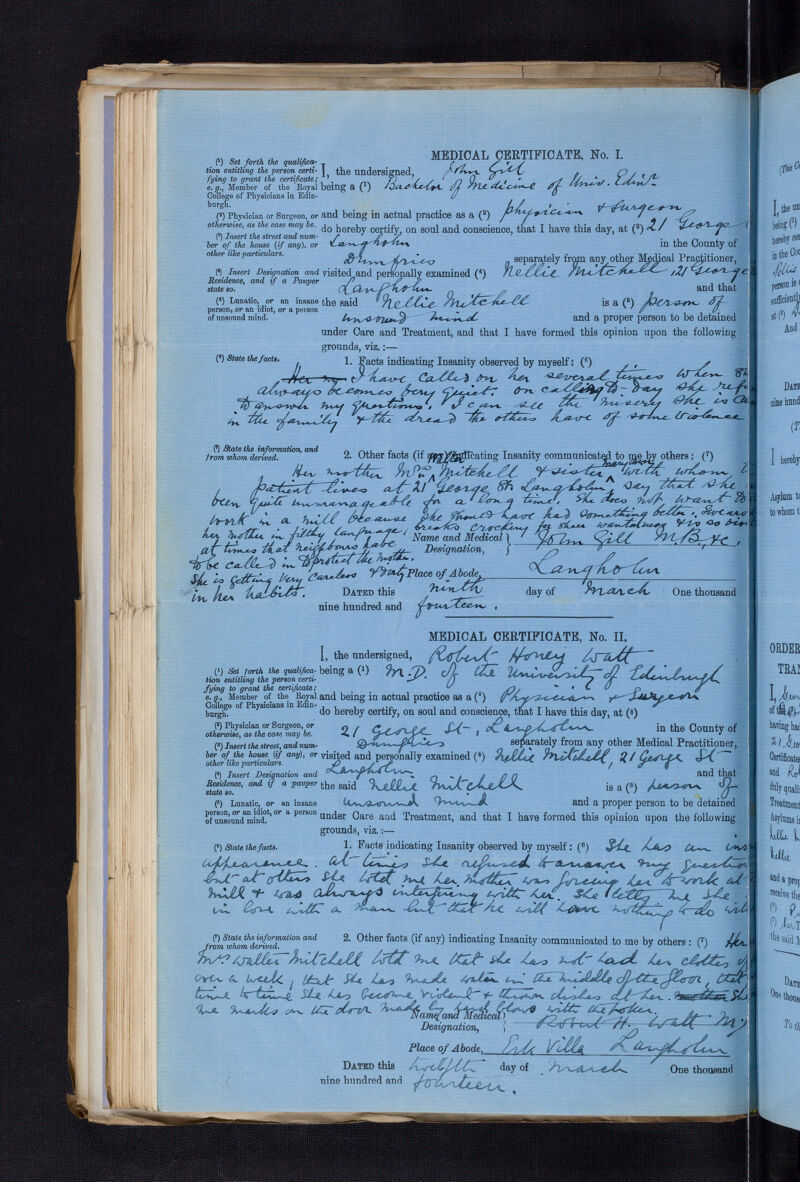 MEDICAL CERTIFICATE, No. I.
(¹) Set forth the qualifica-
tion entitling the person certi-
fying to grant the certificate;
e. g., Member of the Royal
College of Physicians in Edin-
burgh.
I, the undersigned, John Gill
being a (¹) Bachelor of Medicine of Univ. Edinr.
(²) Physician or Surgeon, or
otherwise, as the case may be.
and being in actual practice as a (²) Physician & Surgeon
(³) Insert the street and num-
ber of the house (if any), or
other like particulars.
do hereby certify, on soul and conscience, that I have this day, at (³) 21 George
Langholm in the County of
Dumfries separately from any other Medical Practitioner,
(⁴) Insert Designation and
Residence, and if a Pauper
state so.
visited and personally examined (⁴) Nellie Mitchell, 21 George
Langholm and that
(⁵) Lunatic, or an insane
person, or an idiot, or a person
of unsound mind.
the said Nellie Mitchell is a (⁵) person of
unsound mind and a proper person to be detained
under Care and Treatment, and that I have formed this opinion upon the following
grounds, viz.:—
(⁶) State the facts.
1. Facts indicating Insanity observed by myself: (⁶)
I have called on her several times when
always becomes very quiet. on calling to-day she
to answer my questions. I can see the misery she is
in the family & the dread the others have of some violence
(⁷) State the information, and
from whom derived.
2. Other facts (if any) indicating Insanity communicated to me by others: (⁷)
Her mother Mrs Mitchell & sister with whom
patient lives at 21 George St Langholm, say that she
been quite unmanageable for a long time. She does not want to
work in a mill because she should have had something better, swears
her mother in filthy language, breaks crockery for sheer wantonness & is so
at times that neighbours have
to be called in to protect the mother.
She is getting very careless & dirty
in her habits.
Name and Medical
Designation, John Gill M.B., &c,
Place of Abode, Langholm
DATED this ninth day of March One thousand
nine hundred and fourteen.
MEDICAL CERTIFICATE, No. II.
I, the undersigned, Robert Honey Watt
(¹) Set forth the qualifica-
tion entitling the person certi-
fying to grant the certificate;
e. g., Member of the Royal
College of Physicians in Edin-
burgh.
being a (¹) M.D. of the University of Edinburgh
and being in actual practice as a (²) Physician & Surgeon
(²) Physician or Surgeon, or
otherwise, as the case may be.
do hereby certify, on soul and conscience, that I have this day, at (³)
21 George St, Langholm in the County of
(³) Insert the street, and num-
ber of the house (if any), or
other like particulars.
Dumfries separately from any other Medical Practitioner,
visited and personally examined (⁴) Nellie Mitchell, 21 George St
(⁴) Insert Designation and
Residence, and if a pauper
state so.
Langholm and that
the said Nellie Mitchell is a (⁵) person of
(⁵) Lunatic, or an insane
person, or an idiot, or a person
of unsound mind.
unsound mind and a proper person to be detained
under Care and Treatment, and that I have formed this opinion upon the following
grounds, viz.:—
(⁶) State the facts.
1. Facts indicating Insanity observed by myself: (⁶) She has an
appearance. At times she refused to answer my
but at others she told me her mother was forcing her to work at
mill & was always interfering with her. She tells me she
in love with a man but that he will have nothing to do
(⁷) State the information and
from whom derived.
2. Other facts (if any) indicating Insanity communicated to me by others: (⁷) Her
Mitchell told me that she has not had her clothes
over a week, that she has made water in the middle of the floor, that
time to time she has become violent & thrown dishes at her.
me marks on the door made by blows with the poker.
Name and Medical
Designation, Robert H. Watt
Place of Abode, Esk Villa Langholm
DATED this twelfth day of March One thousand
nine hundred and fourteen.
I, the un
being (¹)
hereby
in the Co
person is
sufficiently
at (³)
And
DATE
nine hund
I hereby
Asylum to
to whom
ORDER
TRA
I,
of the
having
Certificate
and
duly quali
Treatment
Asylums
and a prop
receive the
the said
DATE
One thous
To the